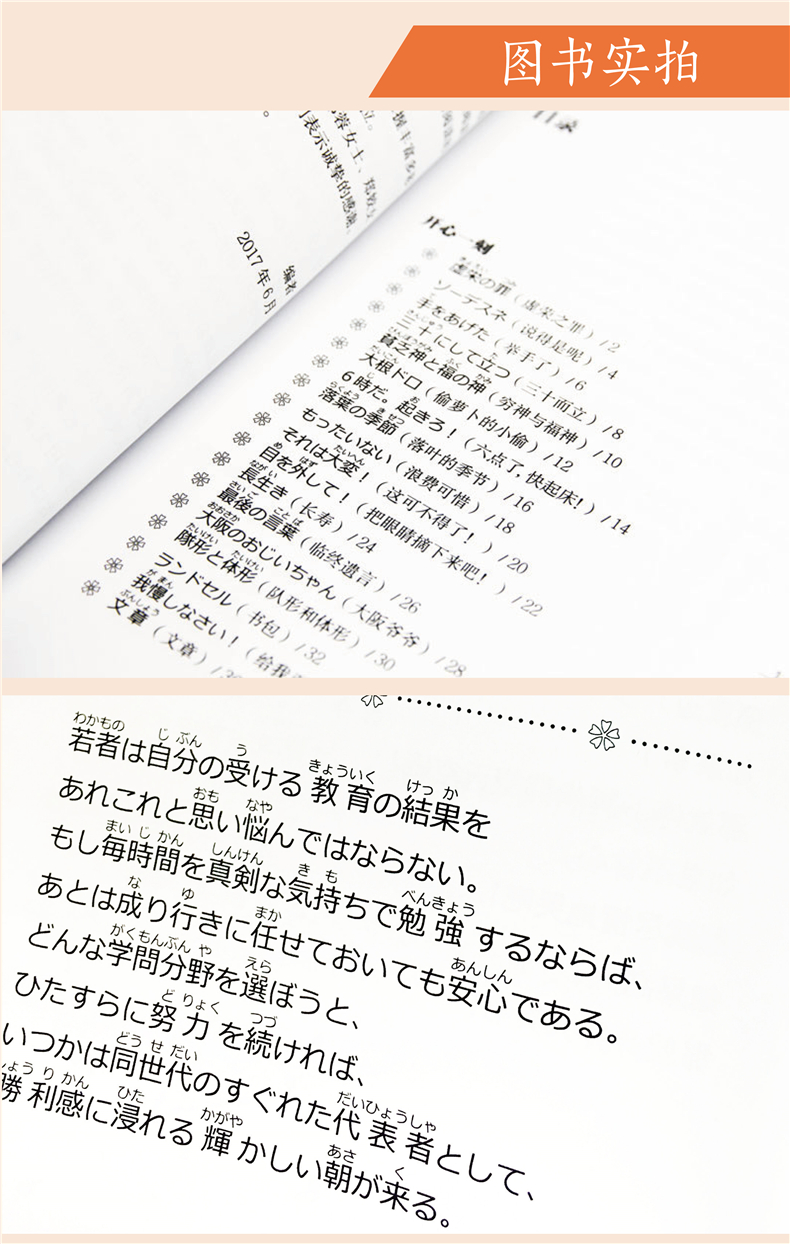 图书实拍
表示诚挚的感谢。
编者
2017年6月
目录
开心一刻
虚栄の罪（虚荣之罪）/2
ソーデスネ（说得是呢）/4
手をあげた（举手了）/6
三十にして立つ（三十而立）/8
貧乏神と福の神（穷神与福神）/10
大根ドロ（偷萝卜的小偷）/12
6時だ。起きろ！（六点了，快起床！）/14
落葉の季節（落叶的季节）/16
もったいない（浪费可惜）/18
それは大変！（这可不得了！）/20
目を外して！（把眼睛摘下来吧！）/22
長生き（长寿）/24
最後の言葉（临终遗言）/26
大阪のおじいちゃん（大阪爷爷）/28
隊形と体形（队形和体形）/30
ランドセル（书包）/32
我慢しなさい！（给我
文章（文章）
若者は自分の受ける教育の結果を
あれこれと思い悩んではならない。
もし毎時間を真剣な気持ちで勉強するならば、
あとは成り行きに任せておいても安心である。
どんな学問分野を選ぼうと、
ひたすらに努力を続ければ、
いつかは同世代のすぐれた代表者として、
勝利感に浸れる輝かしい朝が来る。